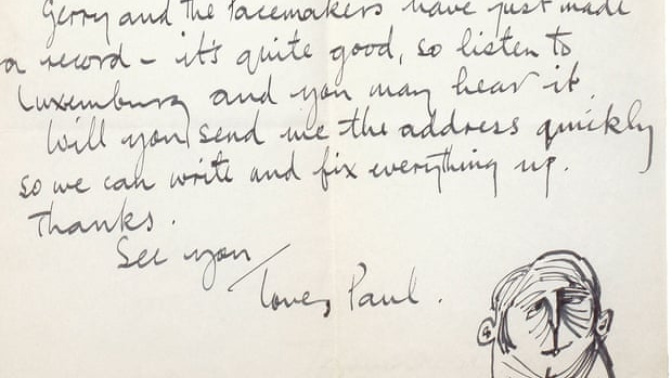 Gerry and the Pacemakers have just made
a record – it's quite good, so listen to
Luxemburg and you may hear it.
Will you send me the address quickly
so we can write and fix everything up.
Thanks.
See you
Love, Paul.